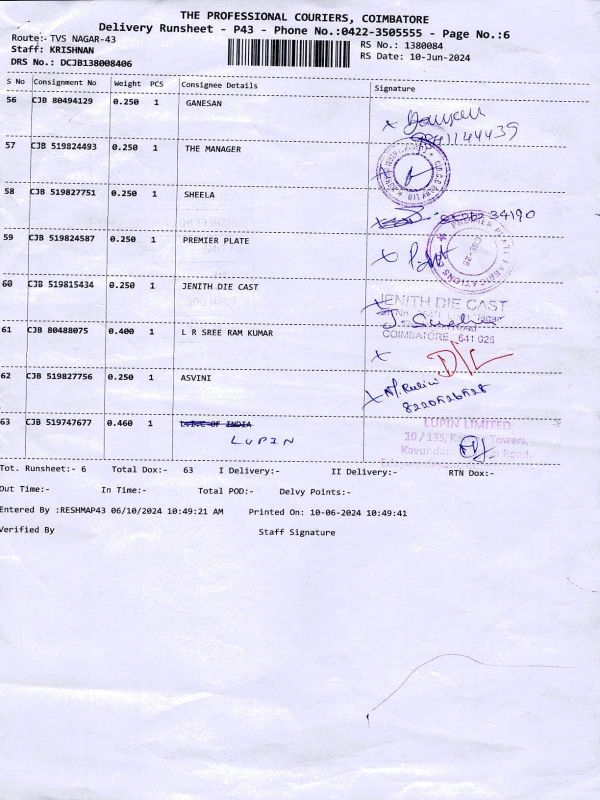 THE PROFESSIONAL COURIERS, COIMBATORE
Delivery Runsheet - P43 - Phone No.:0422-3505555 - Page No.:6
Route:- TVS NAGAR-43
Staff: KRISHNAN
DRS No.: DCJB138008406
RS No.: 1380084
RS Date: 10-Jun-2024
S No Consignment No Weight PCS Consignee Details Signature
56 CJB 80494129 0.250 1 GANESAN
57 CJB 519824493 0.250 1 THE MANAGER
58 CJB 519827751 0.250 1 SHEELA
34190
59 CJB 519824587 0.250 1 PREMIER PLATE
60 CJB 519815434 0.250 1 JENITH DIE CAST
JENITH DIE CAST
61 CJB 80488075 0.400 1 L R SREE RAM KUMAR
COIMBATORE 641 025
D/L
62 CJB 519827756 0.250 1 ASVINI
63 CJB 519747677 0.460 1 L.I.C OF INDIA
LUPIN
LUPIN LIMITED
Towers,
Road,
Tot. Runsheet:- 6 Total Dox:- 63 I Delivery:- II Delivery:- RTN Dox:-
Out Time:- In Time:- Total POD:- Delvy Points:-
Entered By :RESHMAP43 06/10/2024 10:49:21 AM Printed On: 10-06-2024 10:49:41
Verified By Staff Signature